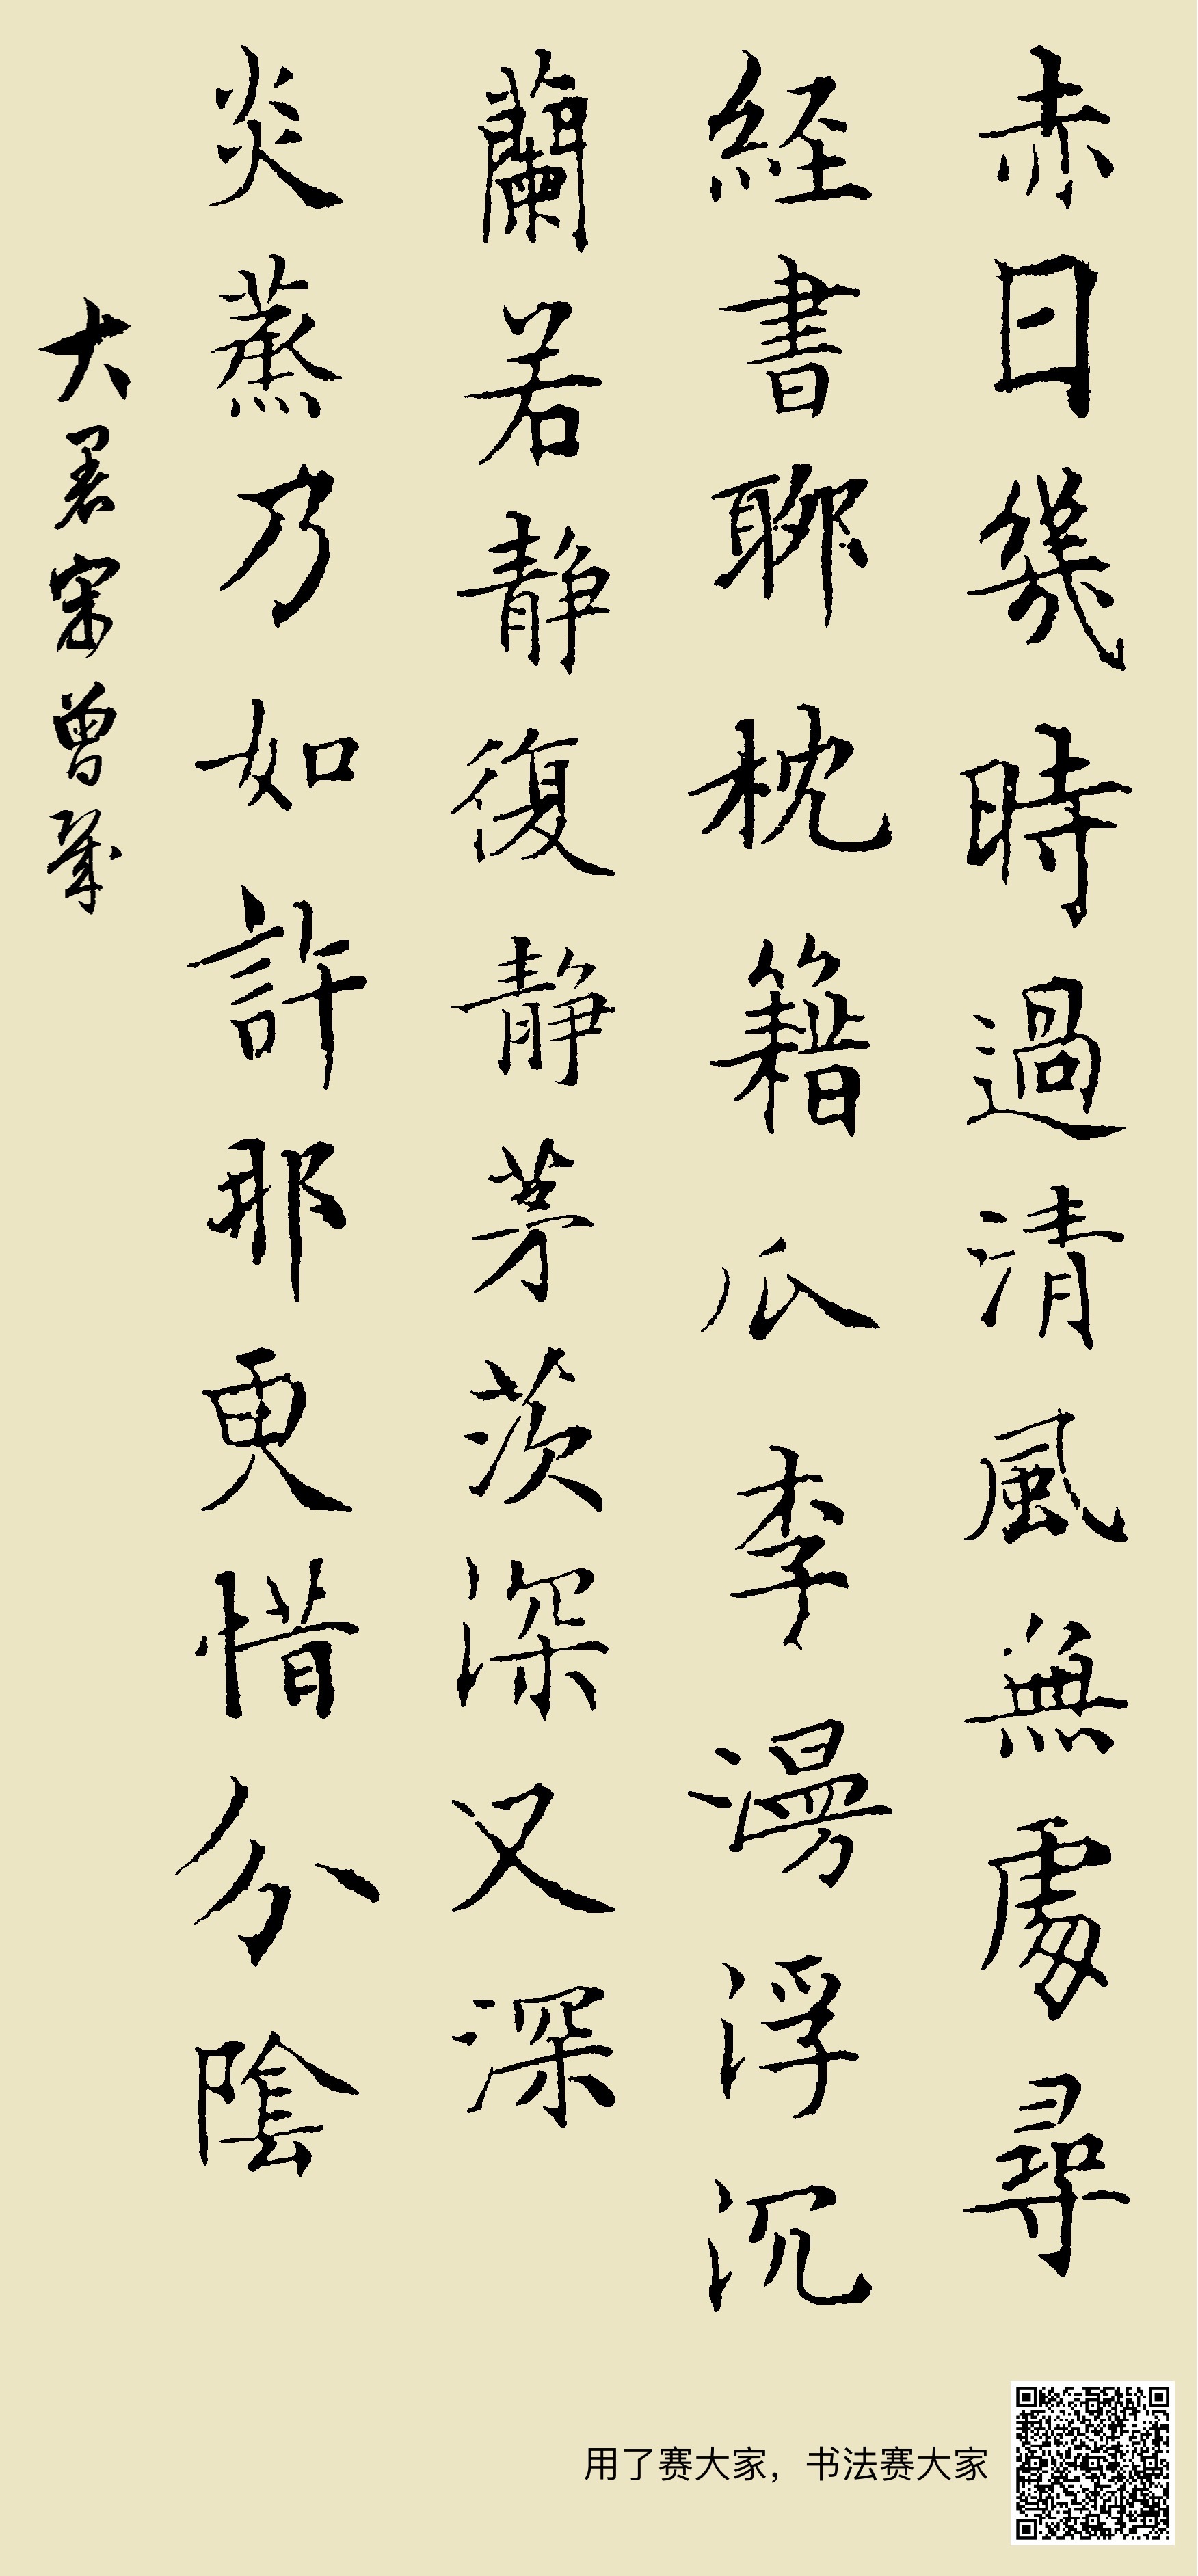 赤日幾時過清風無處尋
経書聊枕籍瓜李漫浮沉
蘭若静復静茅茨深又深
炎蒸乃如許那更惜分陰
大暑宋曾幾
用了赛大家，书法赛大家